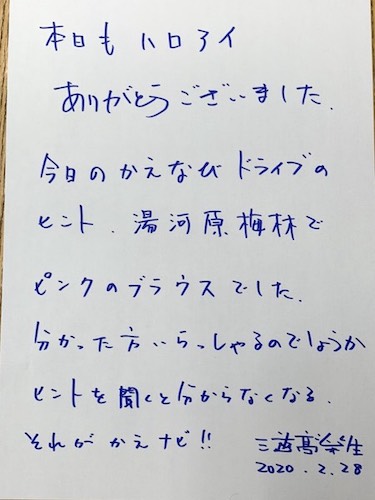 本日もハロアイ
ありがとうございました.
今日のかえなびドライブの
ヒント.湯河原梅林で
ピンクのブラウスでした.
分かった方いらっしゃるのでしょうか
ヒントを聞くと分からなくなる.
それがかえナビ!!
三遊亭楽生
2020.2.28